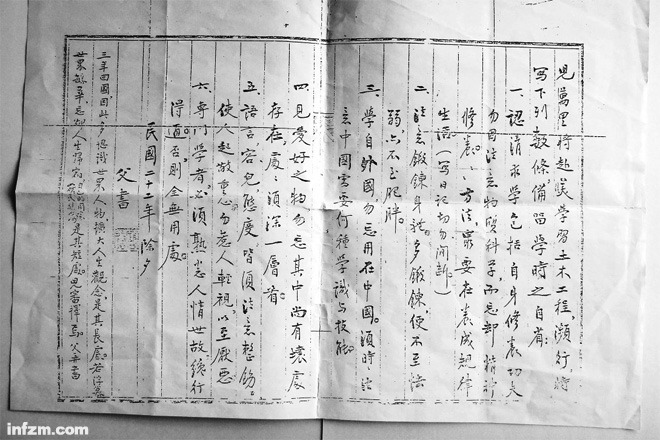 兒萬里將赴美學習土木工程,瀕行,特
寫下列數條備留學時之自省:
一、認清求學包括自身修養功夫
勿因注意物質科學而忘卻精神
修養。方法最要在養成規律
生活(寫日記切勿間斷)
二、注意鍛鍊身體,多鍛鍊便不至怯
弱,亦不至肥胖。
三、學自外國勿忘用在中國。須時時注
意中國需要何種學識與技能。
四、見愛好之物勿忘其中尚有壞處
存在,處處須深一層看。
五、語言容貌態度皆須注意整飭。
使人起敬重,勿惹人輕視,以至厭惡
六、專門學者必須熟悉人情世故,纔行
得通。否則全無用處。
民國二十二年除夕
父書
三年回國因此多認識世界人物,擴大人生觀念,是其長處。若浮慕
世界繁華,忘卻人生歸宿
是其短處。兒當擇焉。父再書
infzm.com